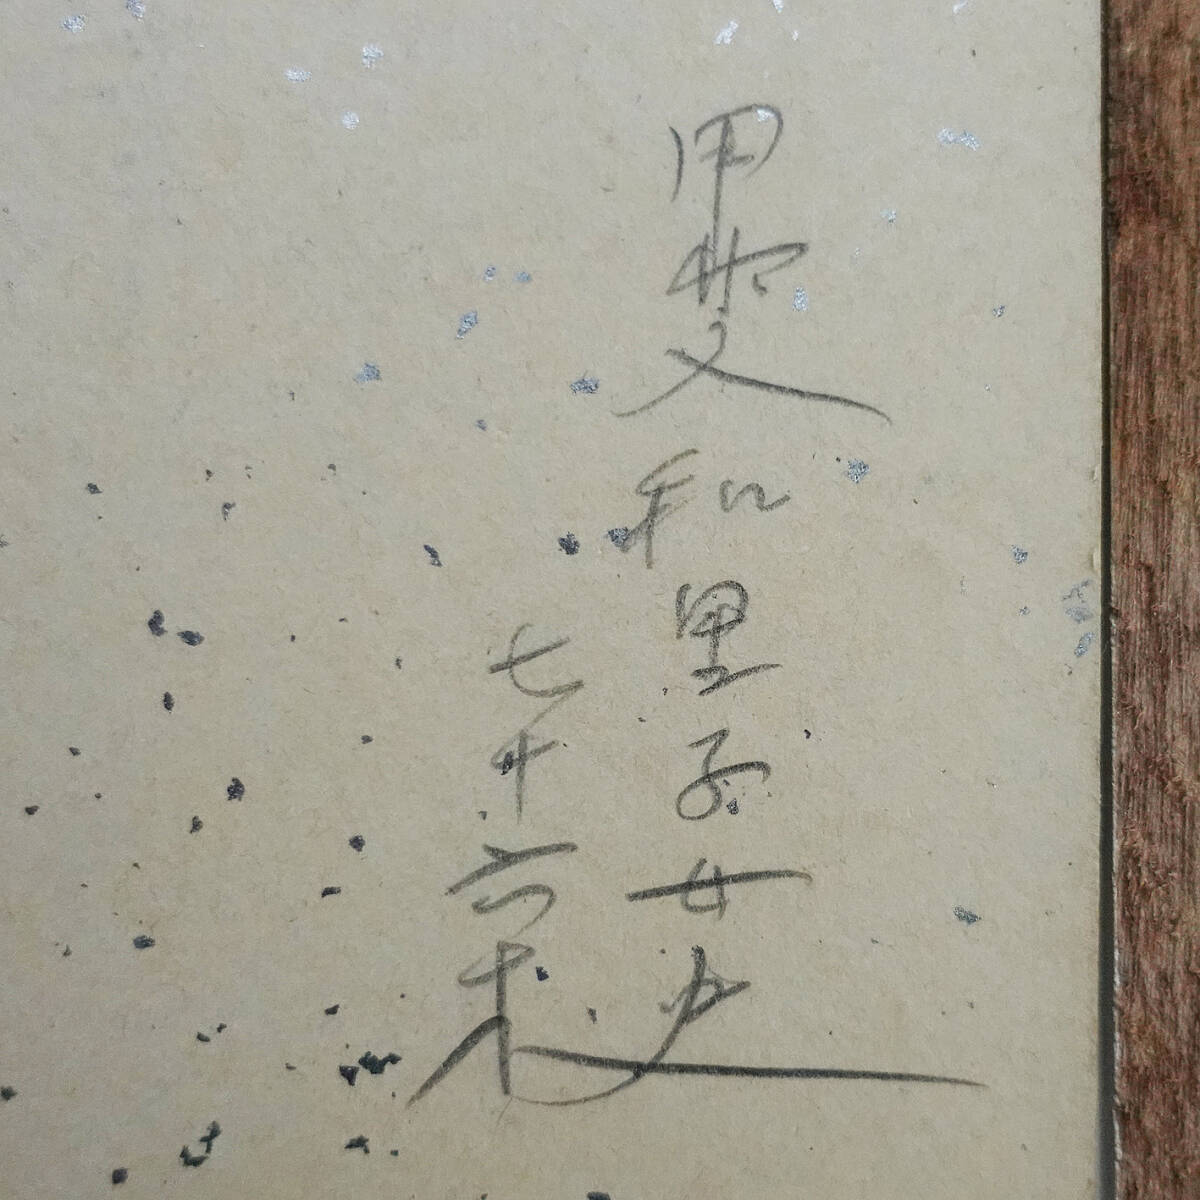 甲斐和里子女史
七十六才